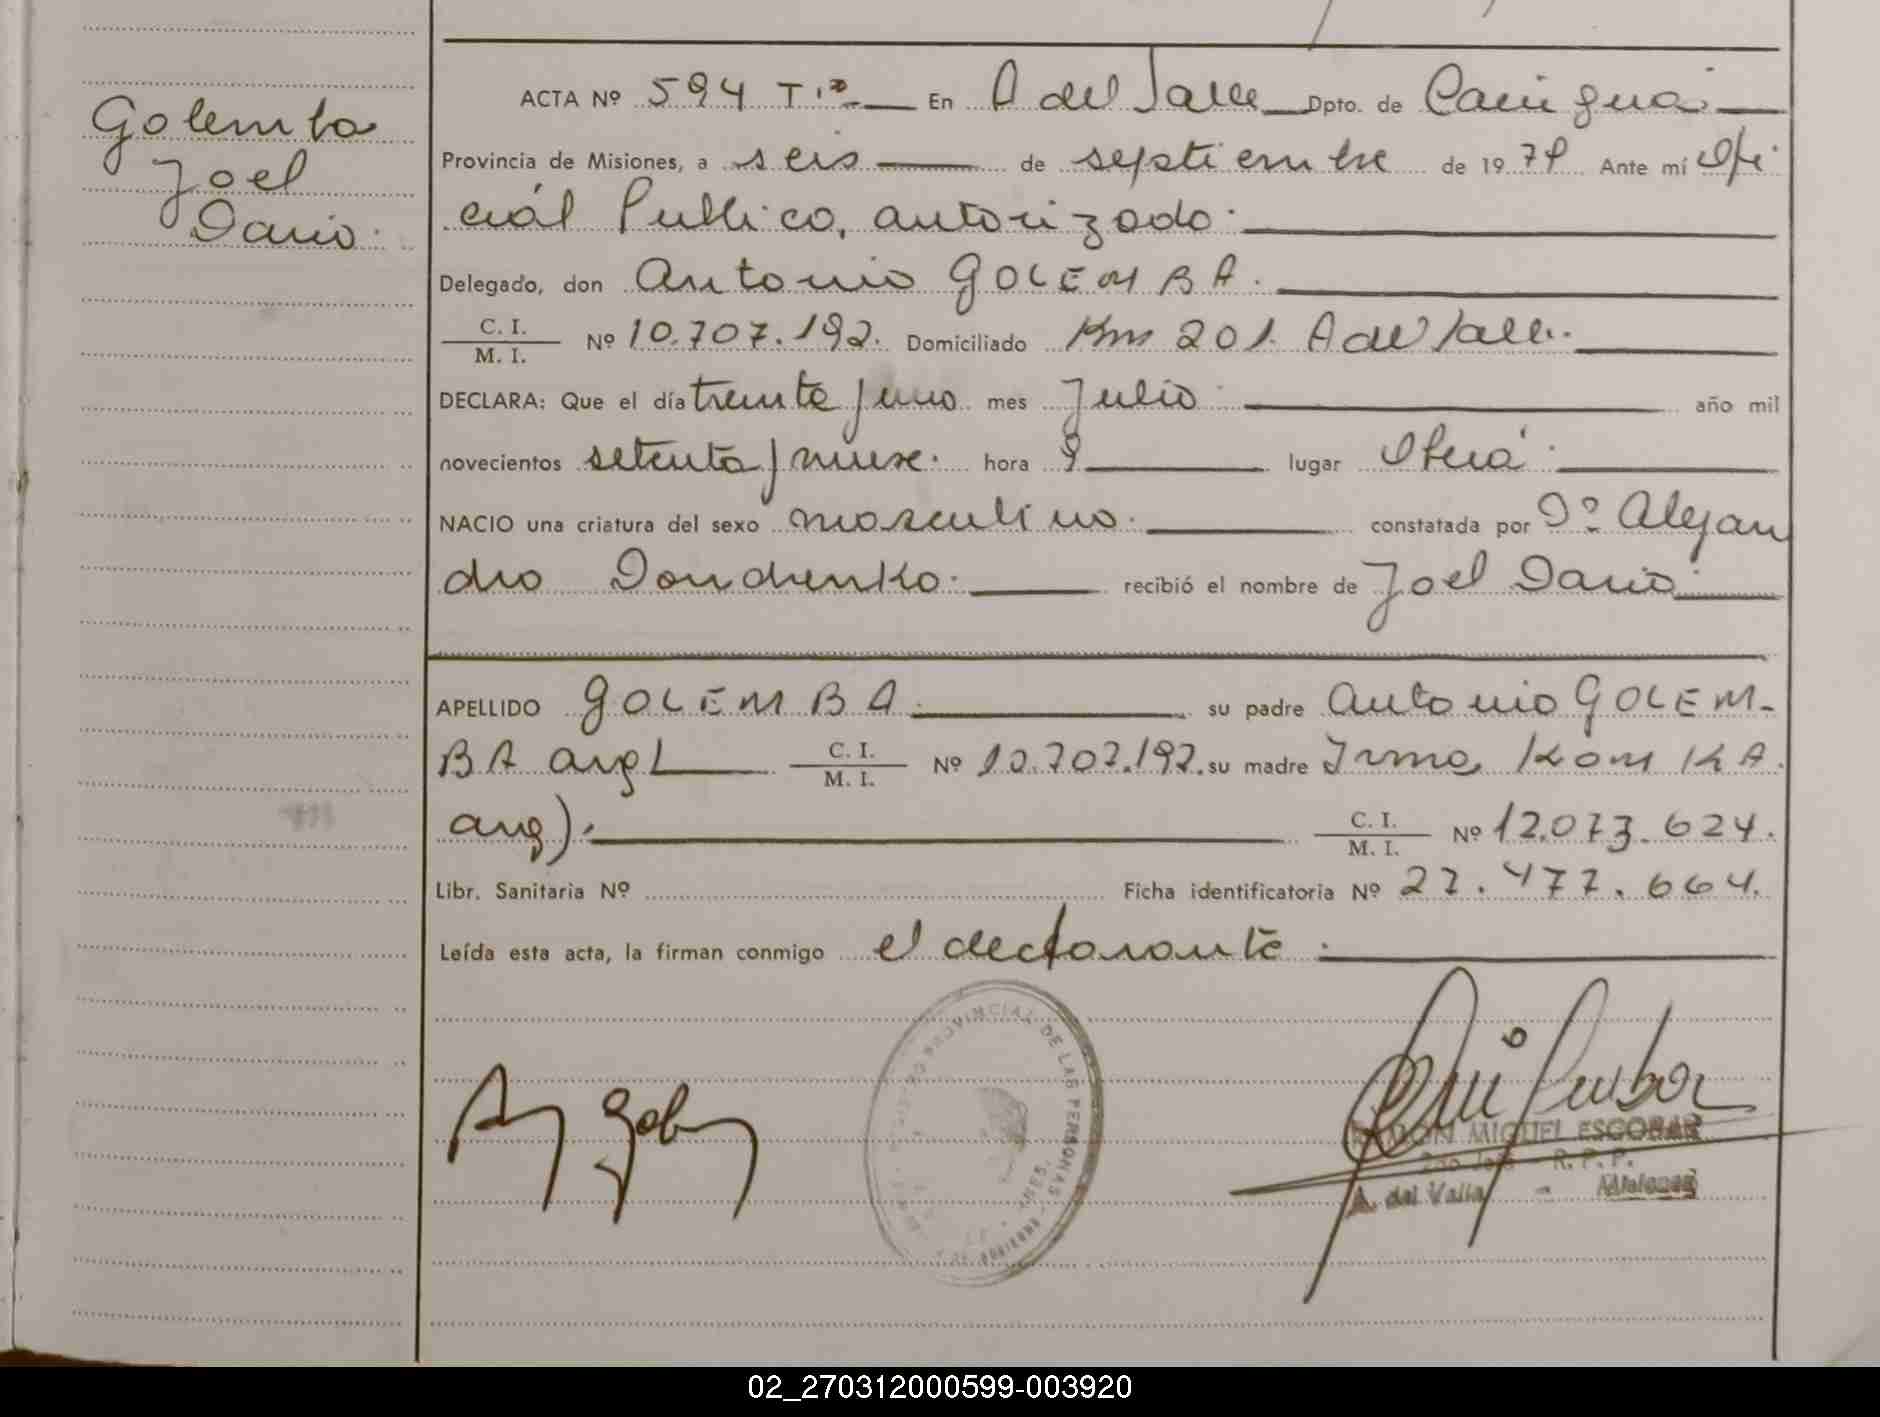 Golemba
Joel
Dario.
ACTA Nº 594 Tº En A del Valle Dpto. de Cainguás
Provincia de Misiones, a seis de septiembre de 1979 Ante mí Ofi
cial Publico, autorizado.
Delegado, don Antonio GOLEMBA.
C. I.
M. I. Nº 10.707.192. Domiciliado Km 201. A del Valle.
DECLARA: Que el día treinta/uno mes Julio año mil
novecientos setenta/nueve. hora 9 lugar Oberá.
NACIO una criatura del sexo masculino. constatada por Dº Alejan
dro Dondrenko. recibió el nombre de Joel Dario.
APELLIDO GOLEMBA su padre Antonio GOLEM-
BA arg C. I.
M. I. Nº 10.707.192. su madre Irma KOMKA.
arg). C. I.
M. I. Nº 12.073.624.
Libr. Sanitaria Nº Ficha identificatoria Nº 27.477.664.
Leída esta acta, la firman conmigo el declarante.
REGISTRO PROVINCIAL DE LAS PERSONAS
RAMON MIGUEL ESCOBAR
2do Jefe - R. P. P.
A. del Valle - Misiones
02_270312000599-003920